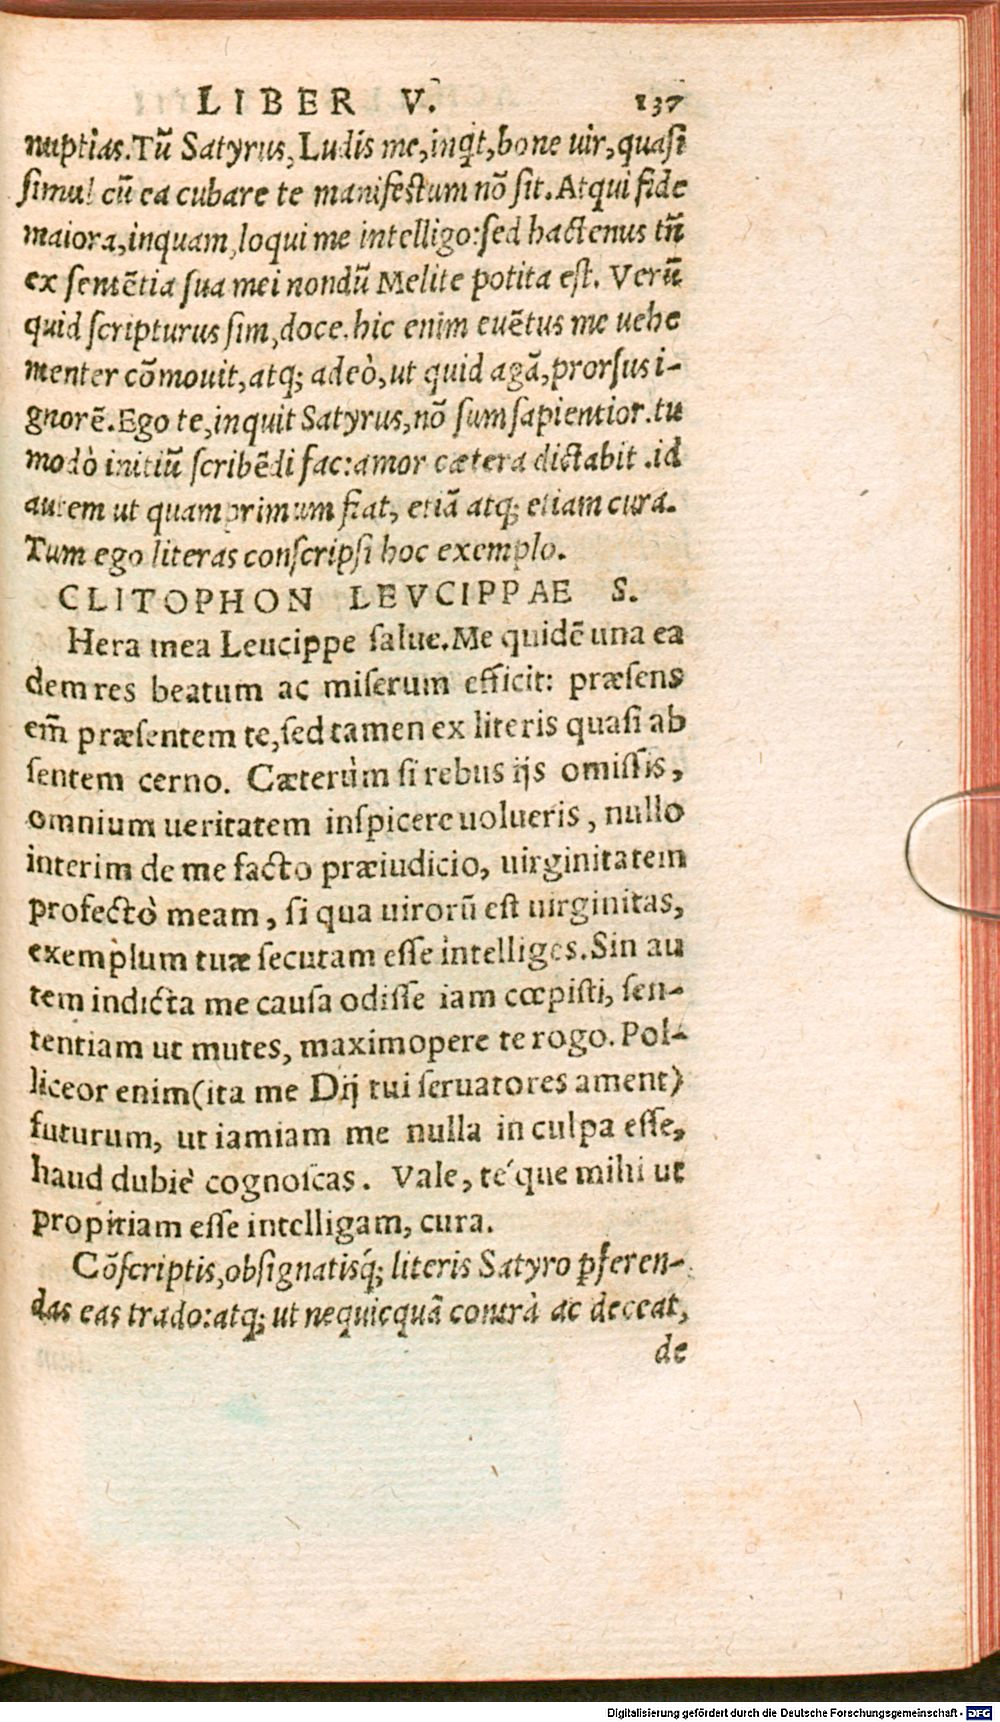 LIBER V. 137
nuptias. Tũ Satyrus, Ludis me, inqͥt, bone uir, quasi
simul cũ ea cubare te manifestum nõ sit. Atqui fide
maiora, inquam, loqui me intelligo: sed hactenus tñ
ex sentẽtia sua mei nondũ Melite potita est. Verũ
quid scripturus sim, doce. hic enim euẽtus me uehe
menter cõmouit, atq; adeò, ut quid agã, prorsus i-
gnorẽ. Ego te, inquit Satyrus, nõ sum sapientior. tu
modò initiũ scribẽdi fac: amor cætera dictabit . id
autem ut quamprimum fiat, etiã atq; etiam cura.
Tum ego literas conscripsi hoc exemplo.
CLITOPHON LEVCIPPAE S.
Hera mea Leucippe salue. Me quidẽ una ea
dem res beatum ac miserum efficit: præsens
em̃ præsentem te, sed tamen ex literis quasi ab
sentem cerno. Cæterùm si rebus ijs omissis,
omnium ueritatem inspicere uolueris, nullo
interim de me facto præiudicio, uirginitatem
profectò meam, si qua uirorũ est uirginitas,
exemplum tuæ secutam esse intelliges. Sin au
tem indicta me causa odisse iam cœpisti, sen-
tentiam ut mutes, maximopere te rogo. Pol-
liceor enim (ita me Dij tui seruatores ament)
futurum, ut iamiam me nulla in culpa esse,
haud dubiè cognoscas. Vale, té que mihi ut
propitiam esse intelligam, cura.
Cõscriptis, obsignatisq́; literis Satyro ꝑferen-
das eas trado: atq; ut nequicquã contrà ac deceat,
de
Digitalisierung gefördert durch die Deutsche Forschungsgemeinschaft - DFG